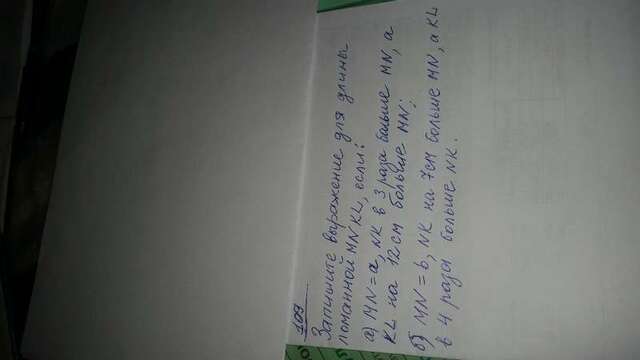 109
Запишите выражение для длины
ломанной MNKL, если:
а) MN = a, NK в 3 раза больше MN, а
KL на 12 см больше MN;
б) MN = b, NK на 7см больше MN, а KL
в 4 раза больше NK.